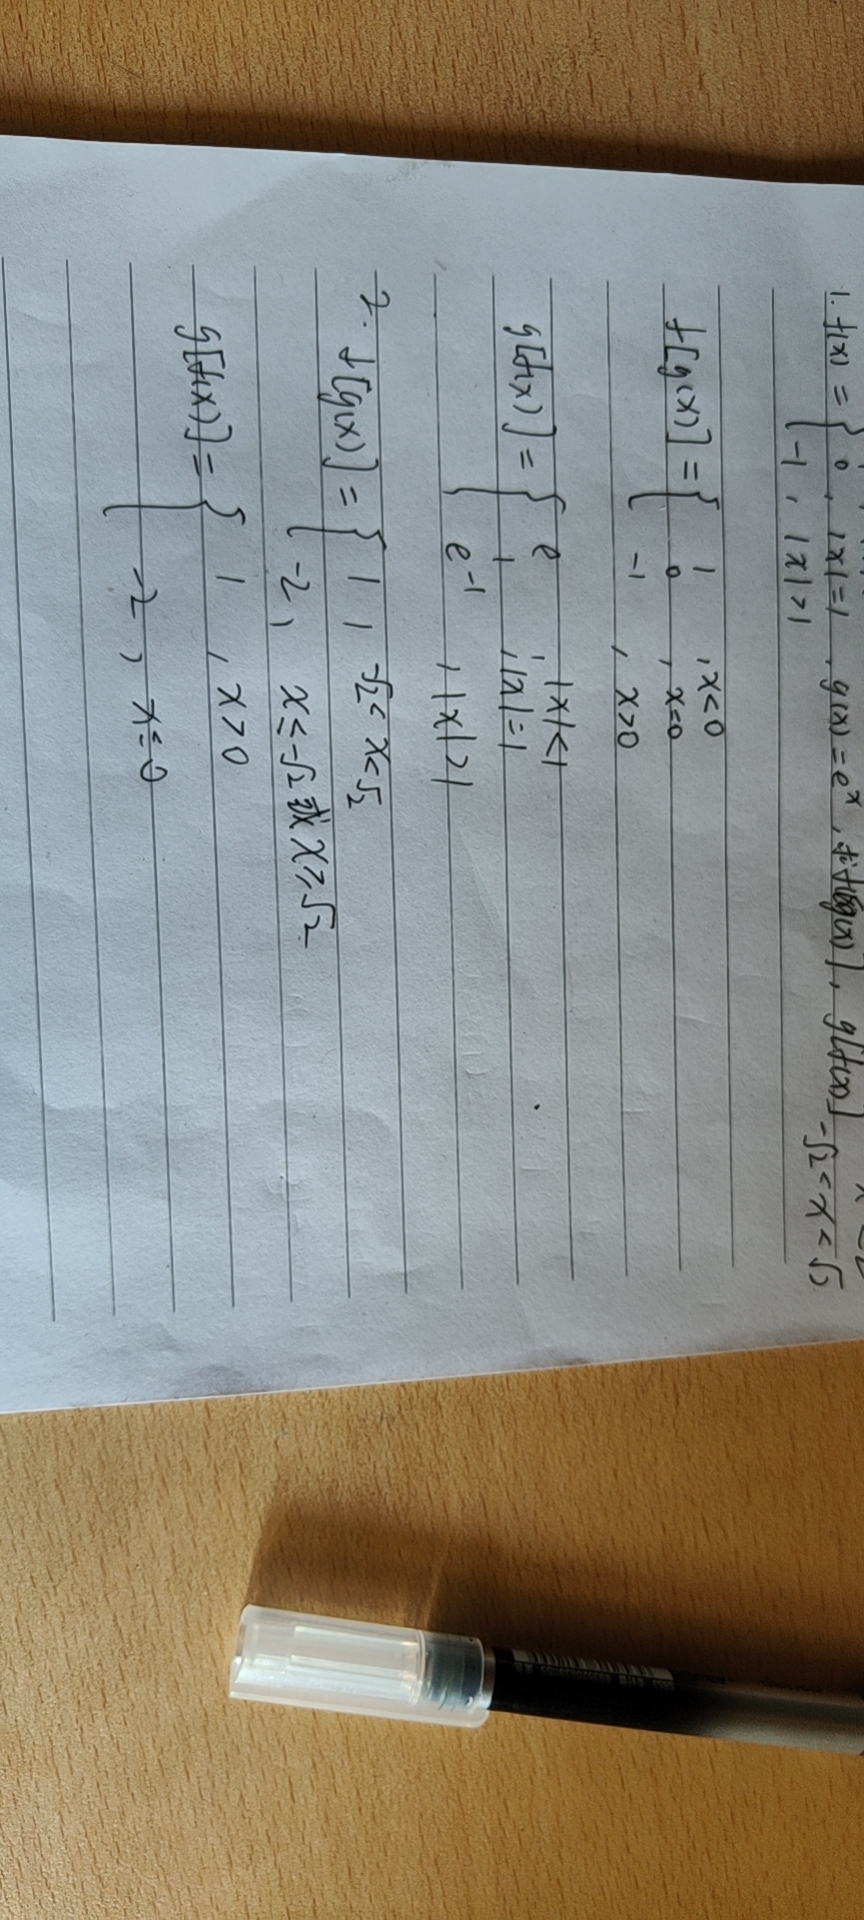 1. f(x) = { 0 , |x|=1 , g(x) = eˣ , 求f[g(x)] , g[f(x)]
-1 , |x|>1
-√2 < x < √2
f[g(x)] = { 1 , x<0
0 , x=0
-1 , x>0
g[f(x)] = { e , |x|<1
1 , |x|=1
e⁻¹ , |x|>1
2. f[g(x)] = { 1 , -√2 < x < √2
-2 , x ≤ -√2 或 x ≥ √2
g[f(x)] = { 1 , x>0
-2 , x=0